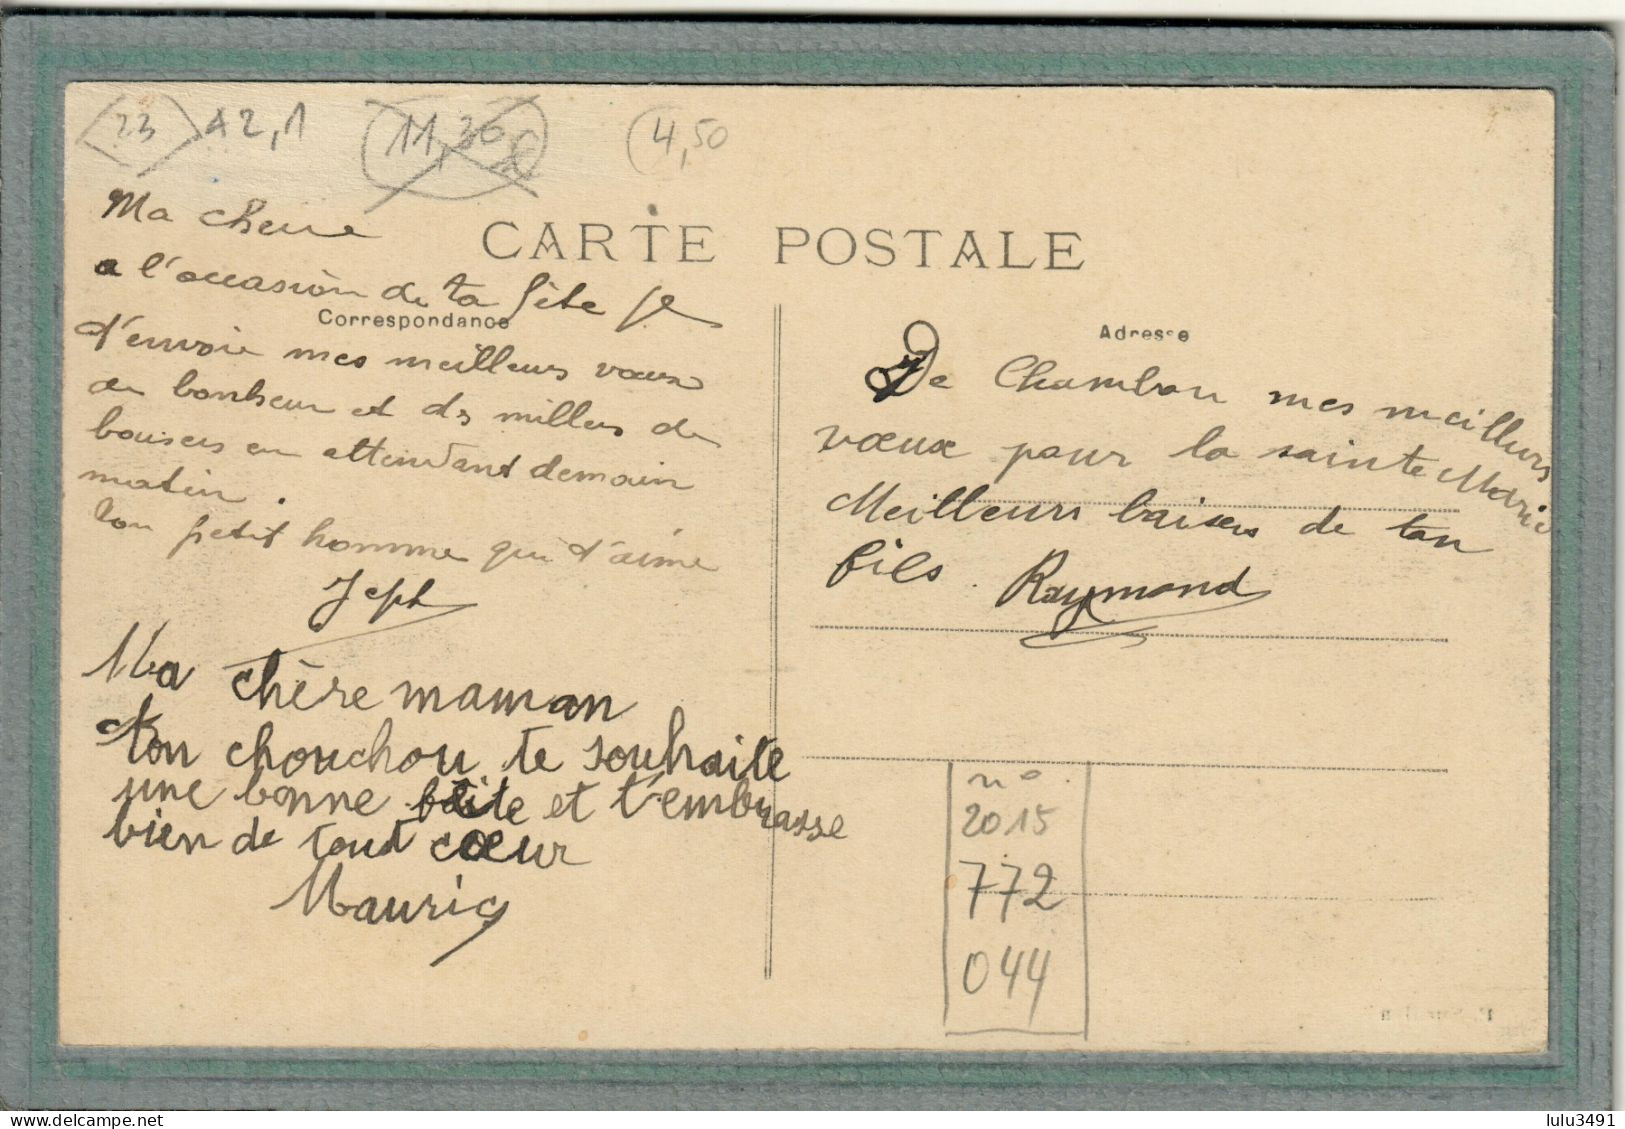 23 A2,1 11,30 4,50
CARTE POSTALE
Correspondance
Ma cherie
a l'occasion de ta fête je
t'envoie mes meilleurs vœux
de bonheur et ds milleus de
baisers en attendant demain
matin.
ton petit homme qui t'aime
Jeph
Ma chère maman
ton chouchou te souhaite
une bonne fête et t'embrasse
bien de tout cœur
Maurice
Adresse
De Chambon mes meilleurs
vœux pour la sainte Marie
Meilleurs baisers de ton
fils. Raymond
no.
2015
772
044
lulu3491